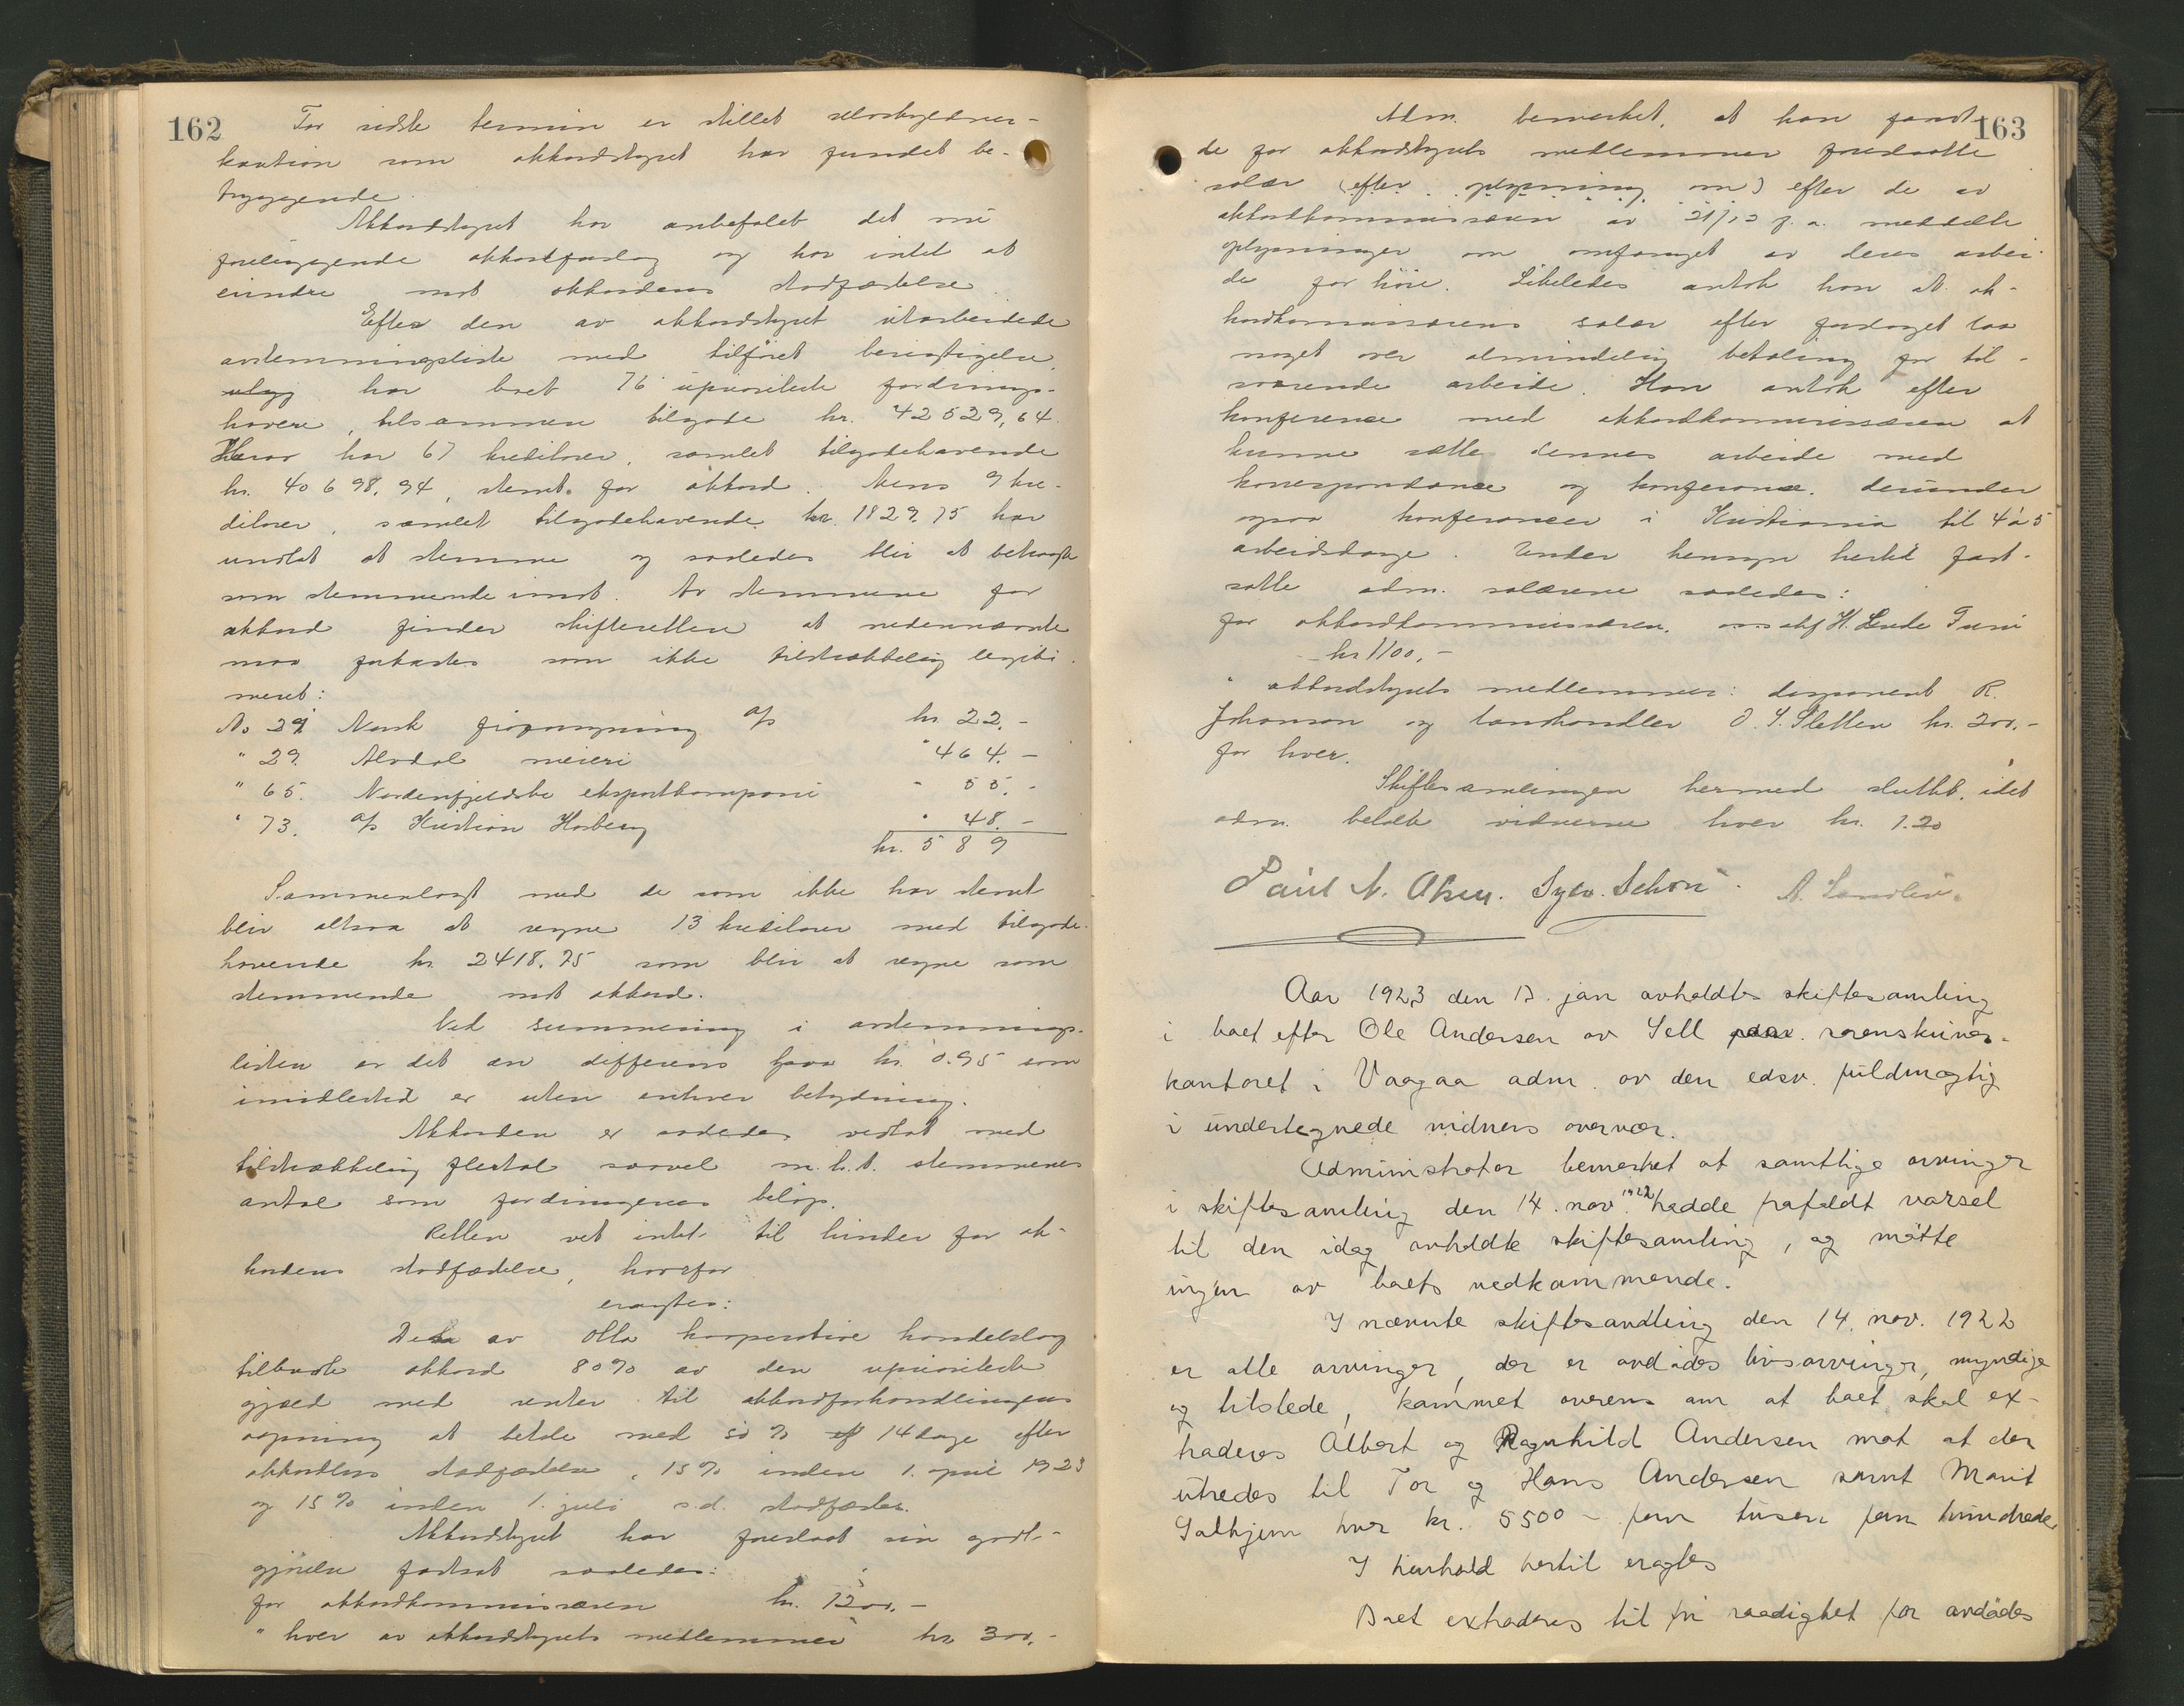 162
For sidste termin er stillet selvskyldner-
kaution som akkordstyret har fundet be-
tryggende.
Akkordstyret har anbefalet det nu
foreliggende akkordforslag og har intet at
erindre mot akkordens stadfæstelse.
Efter den av akkordstyret utarbeidede
avstemningsliste med tilføiet berigtigelse
har boet 76 upriviterte fordrings-
havere, tilsammen tilgode kr. 42529,64.
Herav har 67 kreditorer, samlet tilgodehavende
kr. 40698,94, stemt for akkord. Mens 9 kre-
ditorer, samlet tilgodehavende kr. 1829.75 har
undlat at stemme og saaledes blir at betragte
som stemmende imot. Av stemmene for
akkord finder skifteretten at nedennævnte
maa forkastes som ikke tilstrækkelig legiti-
meret:
No 27 Norsk a/s kr. 22.-
" 29. Alvdal meieri " 464.-
" 65. Nordenfjeldske eksportkompani " 55.-
" 73. a/s Kristian Hosberg " 48.-
kr. 589
Sammenlagt med de som ikke har stemt
blir altsaa at regne 13 kreditorer med tilgode-
havende kr. 2418.75 som blir at regne som
stemmende mot akkord.
Ved summering i avstemnings-
listen er det en differens paa kr. 0.95 som
imidlertid er uten enhver betydning.
Akkorden er saaledes vedtat med
tilstrækkelig flertal saavel m.h.t. stemmenes
antal som fordringenes beløp.
Retten vet intet til hinder for ak-
kordens stadfæstelse, hvorfor
eragtes:
Den av Otta kooperative handelslag
tilbudte akkord 80% av den uprioriterte
gjæld med renter til akkordforhandlingens
aapning at betale med 50% 14 dage efter
akkordens stadfæstelse, 15% inden 1. april 1923
og 15% inden 1. juli s.d. stadfæstes.
Akkordstyret har foreslaat sin godt-
gjørelse fastsat saaledes:
for akkordkommissæren kr. 1200.-
" hver av akkordstyrets medlemmer kr. 300.-
163
Adm. bemerket, at han fandt
de for akkordstyrets medlemmer foreslaatte
salær (efter oplysning om) efter de av
akkordkommissæren av 21/12 f.a. meddelte
oplysninger om omfanget av deres arbei-
de for høie. Likeledes antok han at ak-
kordkommissærens salær efter forslaget laa
noget over almindelig betaling for til-
svarende arbeide. Han antok efter
konference med akkordkommissæren at
kunne sætte dennes arbeide med
korrespondance og konferance, derunder
ogsaa konferancer i Kristiania til 4 à 5
arbeidsdage. Under hensyn hertil fast-
satte adm. salærene saaledes:
for akkordkommissæren, H. Lunde
kr 1100.-
" akkordstyrets medlemmer: disponent R.
Johansen og landhandler O. S. Sletten kr. 200.-
for hver.
Skiftesamlingen hermed sluttet, idet
adm. betalte vidnerne hver kr. 1.20
Paul N. Olsen. Sylv. Schou. A. Sandlie.
Aar 1923 den 13. jan avholdtes skiftesamling
i boet efter Ole Andersen av Sell sorenskriver-
kontoret i Vaagaa adm. av den edsv. fuldmægtig
i undertegnede vidners overvær.
Administrator bemerket at samtlige arvinger
i skiftesamling den 14. nov. 1922 hadde frafaldt varsel
til den idag avholdte skiftesamling, og møtte
ingen av boets vedkommende.
I nævnte skiftesamling den 14. nov. 1922
er alle arvinger, der er avdødes livsarvinger, myndige
og tilstede, kommet overens om at boet skal ex-
traderes Albert og Ragnhild Andersen mot at der
utredes til Tor og Hans Andersen samt Marit
Solhjem hver kr. 5500 - fem tusen fem hundrede
I henhold hertil eragtes
Boet extraderes til fri raadighet for avdødes